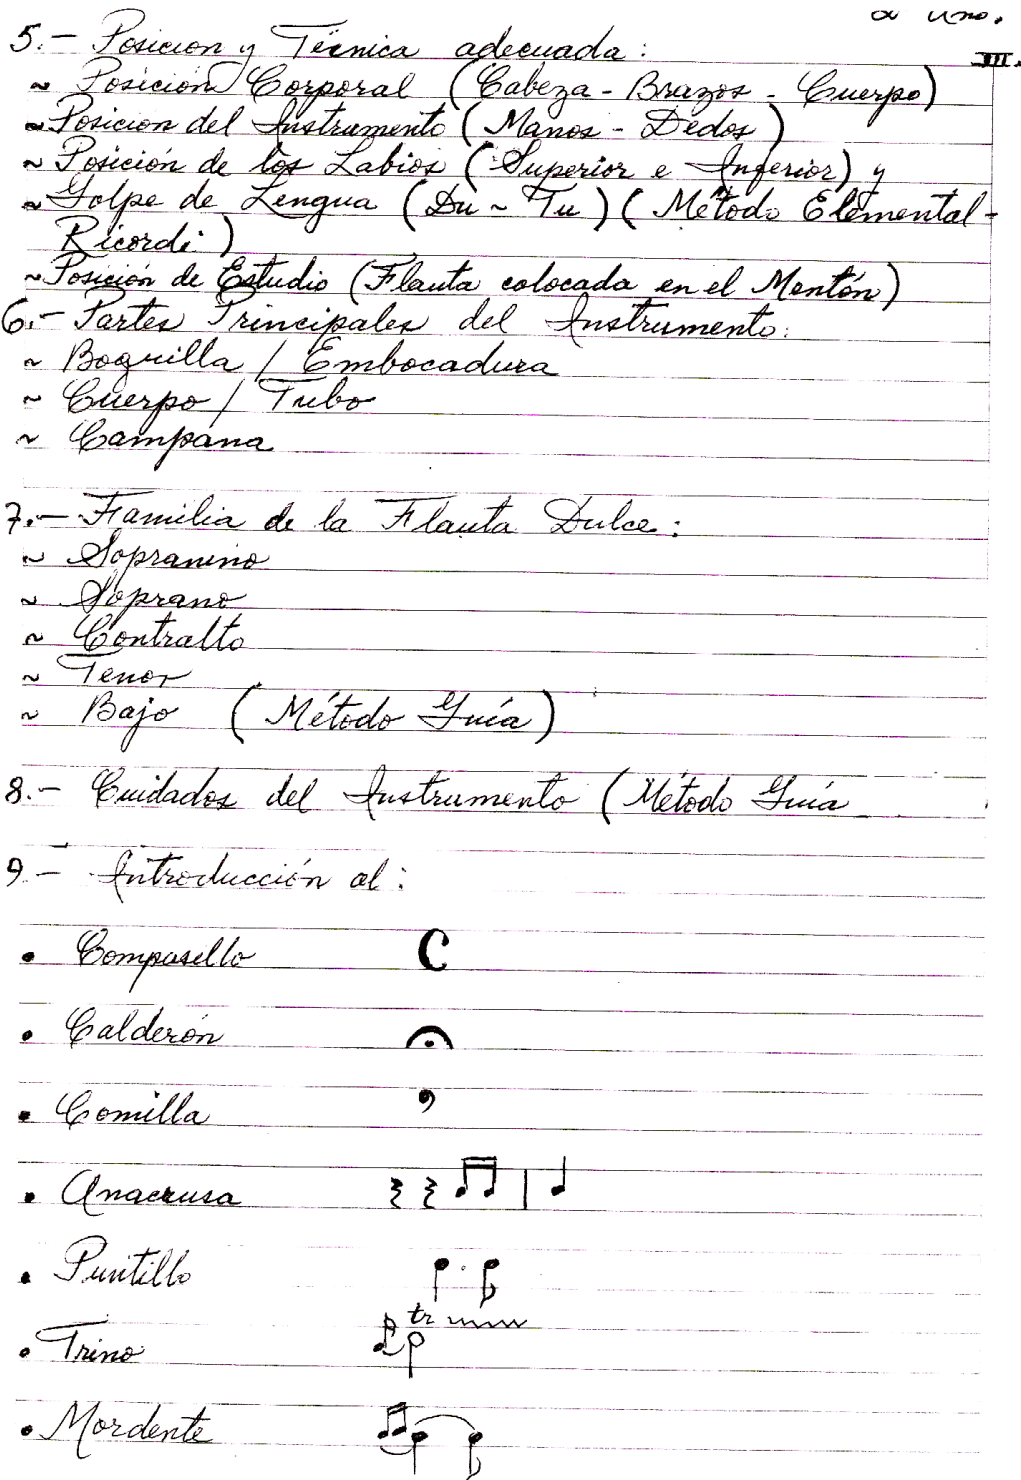 a uno.
III.
5.- Posicion y Técnica adecuada:
~ Posición Corporal (Cabeza - Brazos - Cuerpo)
~ Posicion del Instrumento (Manos - Dedos)
~ Posición de los Labios (Superior e Inferior) y
~ Golpe de Lengua (Du ~ Tu) (Método Elemental-
Ricordi)
~ Posición de Estudio (Flauta colocada en el Mentón)
6.- Partes Principales del Instrumento:
~ Boquilla / Embocadura
~ Cuerpo / Tubo
~ Campana
7.- Familia de la Flauta Dulce:
~ Sopranino
~ Soprano
~ Contralto
~ Tenor
~ Bajo (Método Guía)
8.- Cuidados del Instrumento (Método Guía
9.- Introducción al:
• Compasillo C
• Calderón
• Comilla ,
• Anacrusa
• Puntillo
• Trino tr
• Mordente